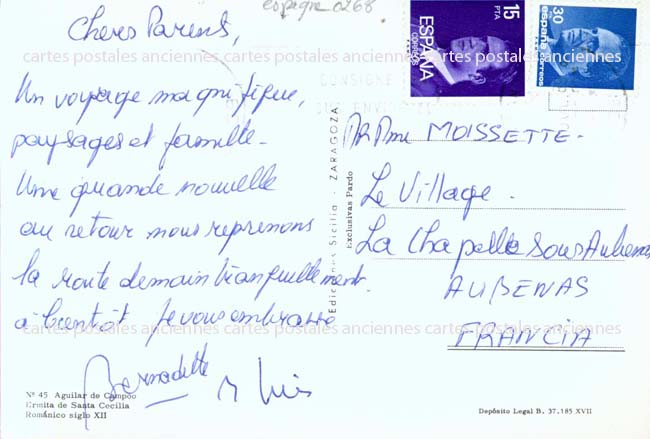 espagne 0268
Cheres Parents,
Un voyage magnifique,
paysages et famille -
Une grande nouvelle
au retour nous reprenons
la route demain tranquillement
à bientôt Je vous embrasse
Bernadette
Nº 45 Aguilar de Campoo
Ermita de Santa Cecilia
Románico siglo XII
Ediciones Sicilia - ZARAGOZA
Exclusivas Pardo
15
PTA
ESPAÑA
CORREOS
30
españa
correos
CONSIGNE
Mr Mme MOISSETTE -
Le Village.
La Chapelle sous Aubenas
AUBENAS
FRANCIA
Depósito Legal B. 37.185 XVII
cartes postales anciennes cartes postales anciennes cartes postales anciennes
cartes postales anciennes cartes postales anciennes cartes postales anciennes